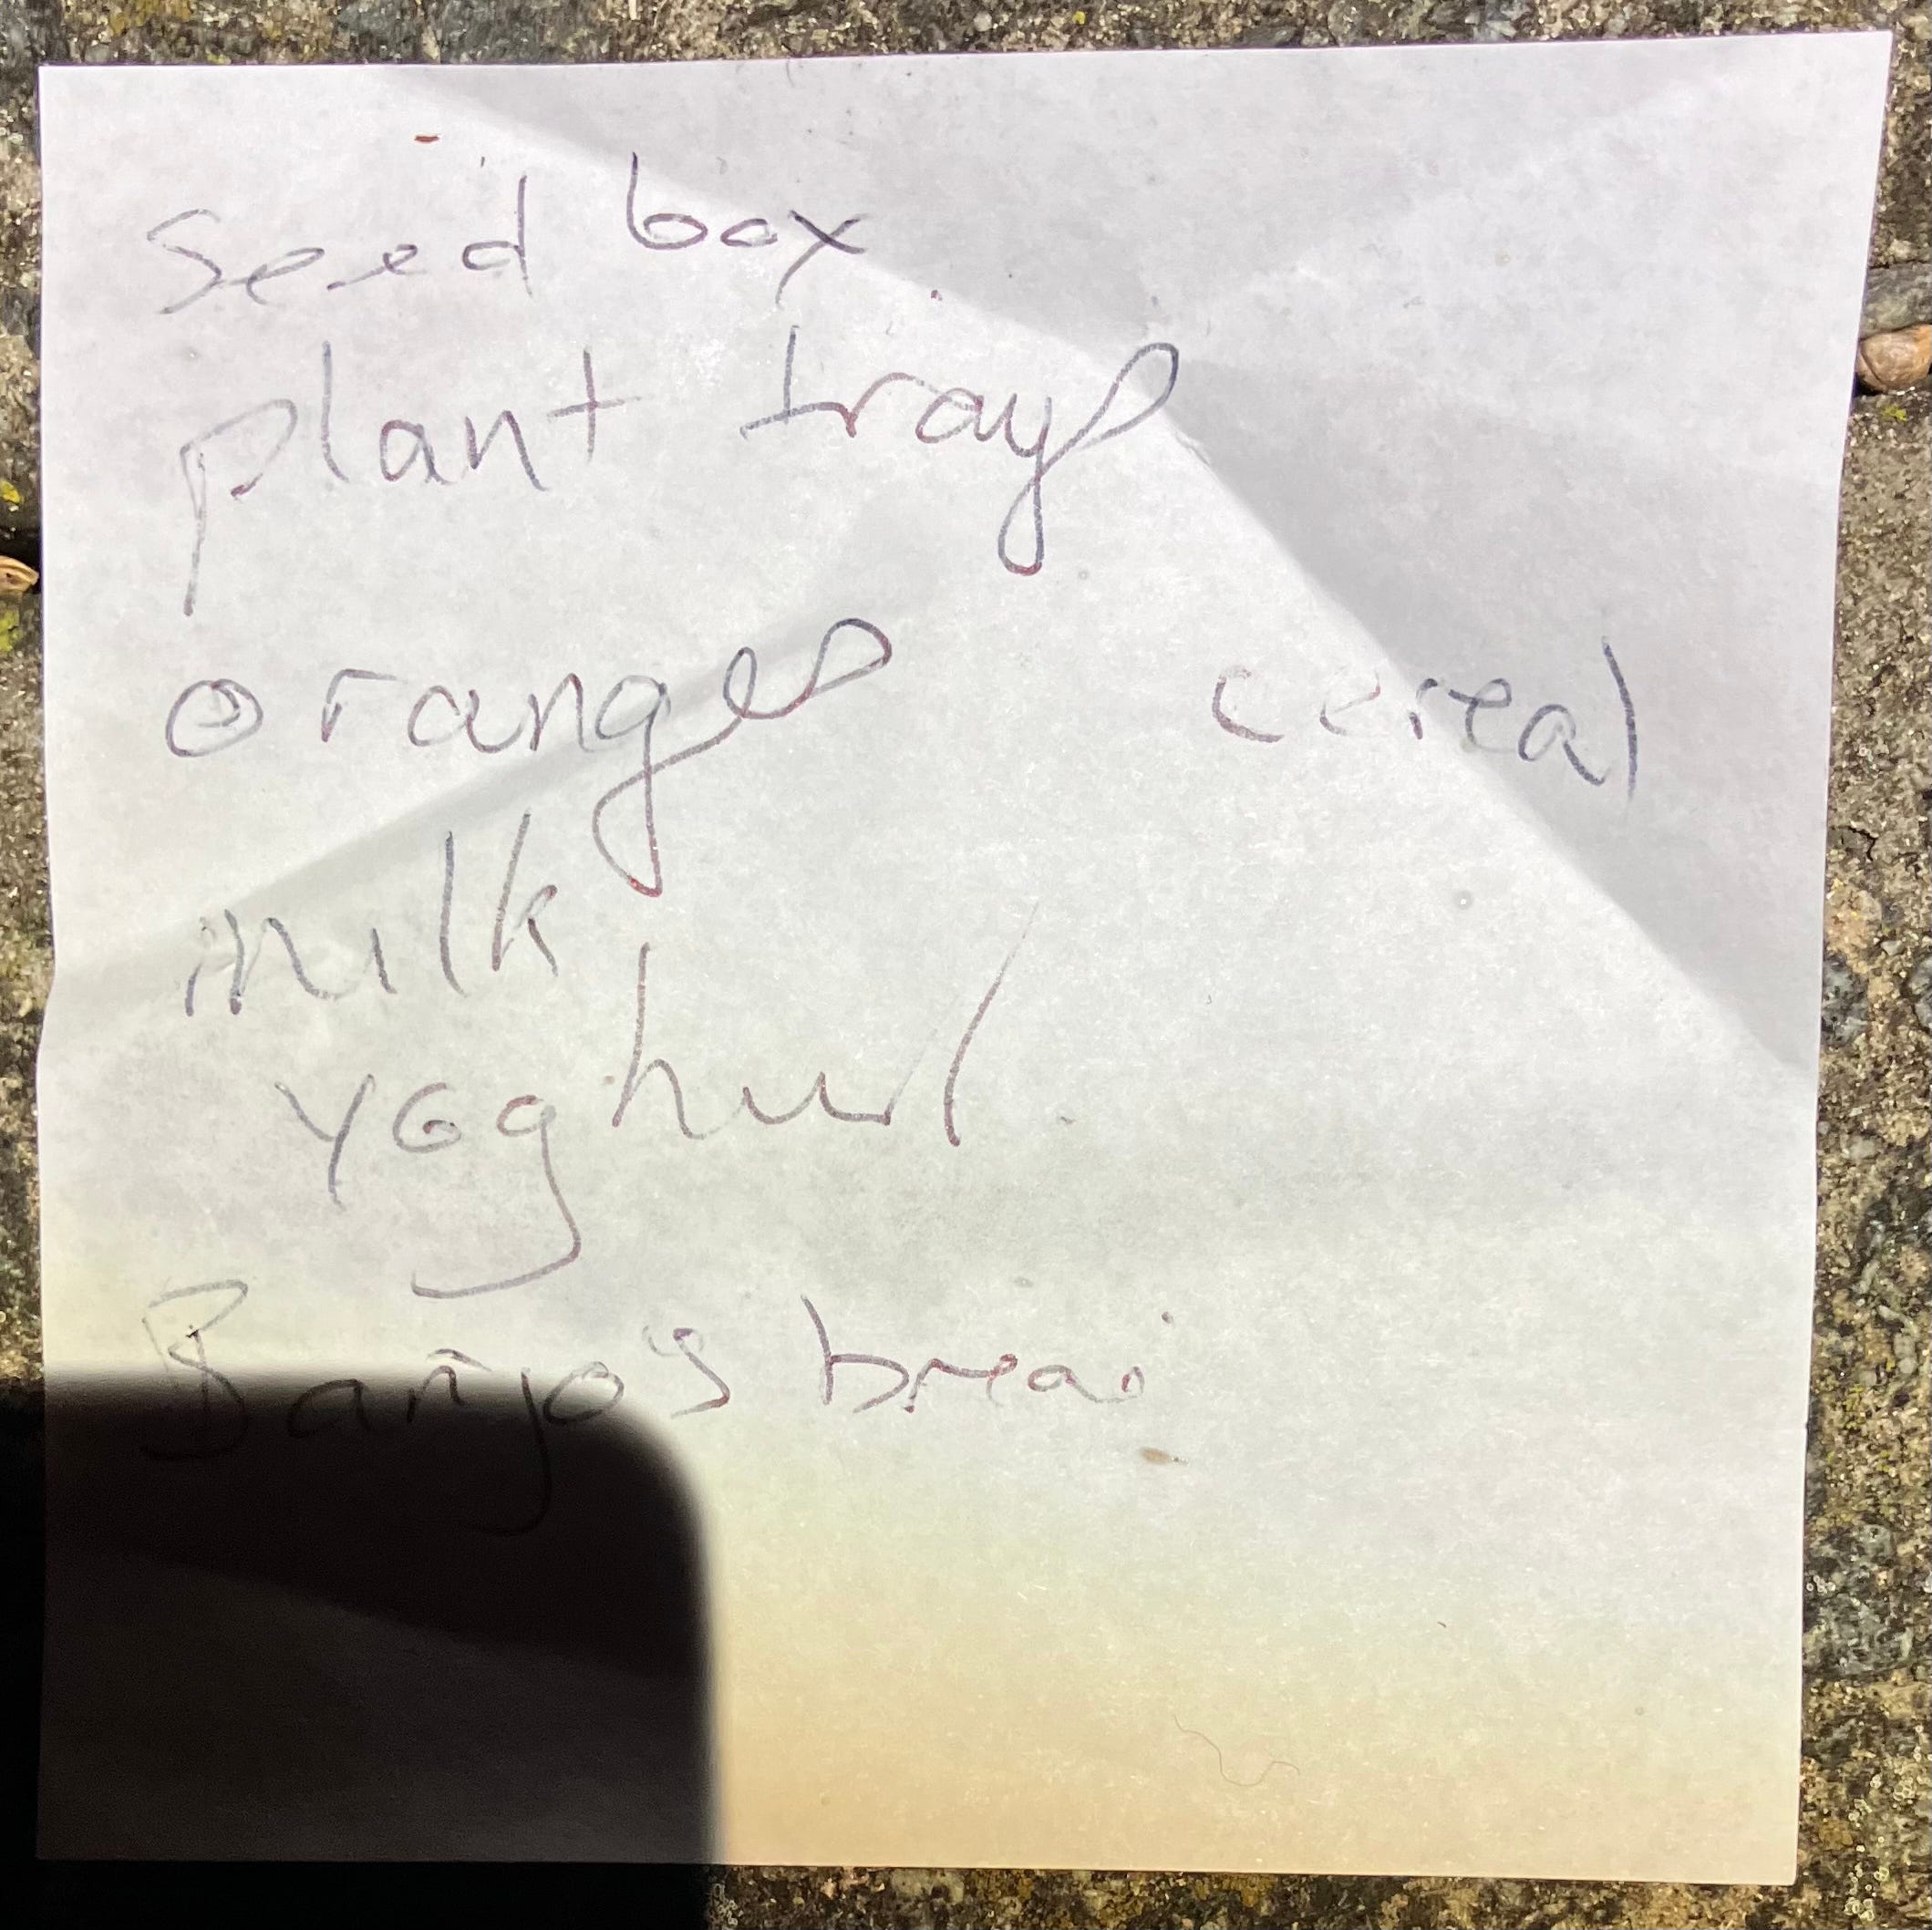 seed box
plant trays
oranges cereal
milk
yoghurt
Banjos bread